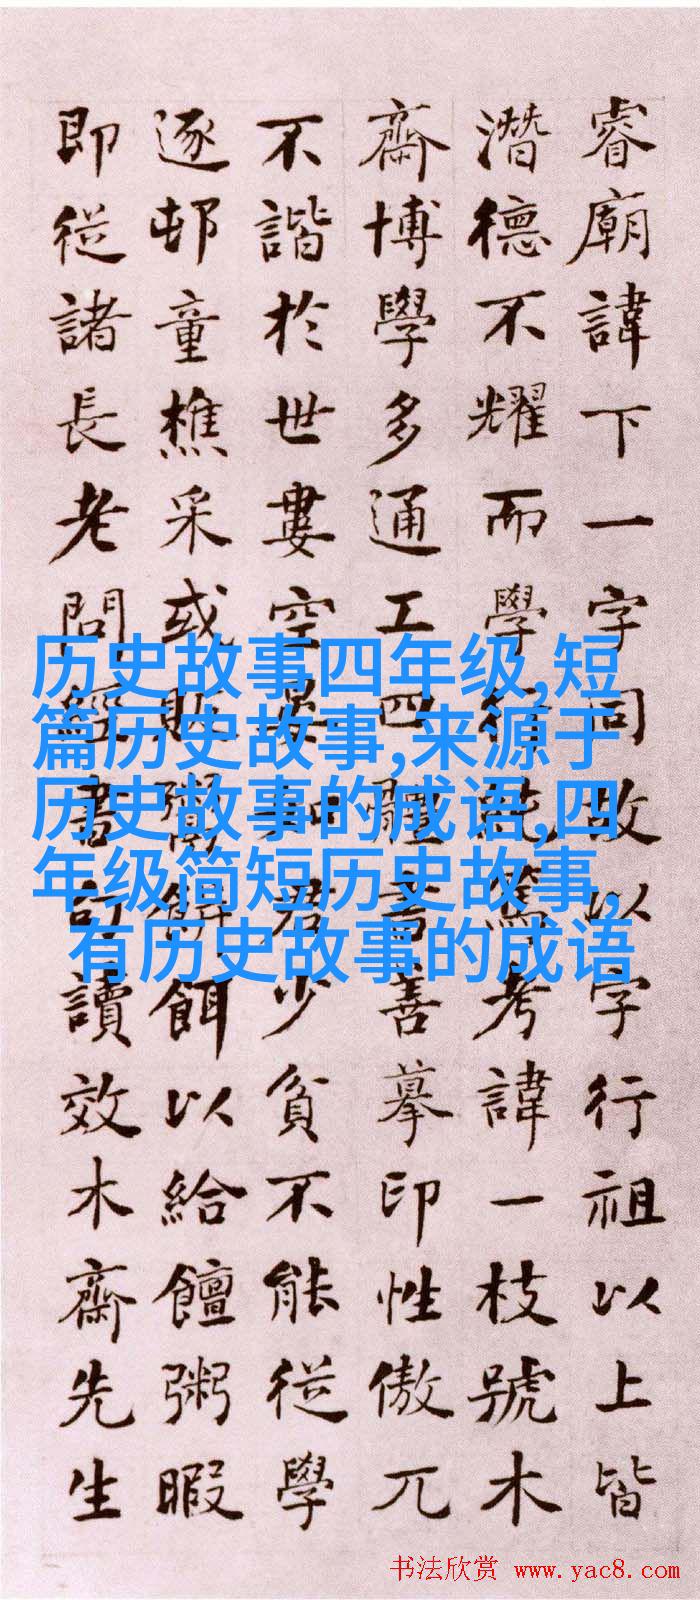 睿廟諱下一字同故以字行祖以上皆
潛德不耀而學行篤考諱一枝號木
齋博學多通工四體書善摹印性傲兀
不諧於世婁空晏如君少貧不能從學
逐邨童樵采或販鬻餅餌以給饘粥暇
即從諸長老問經書句讀效木齋先生
历史故事四年级,短
篇历史故事,来源于
历史故事的成语,四
年级简短历史故事,
有历史故事的成语
书法欣赏 www.yac8.com